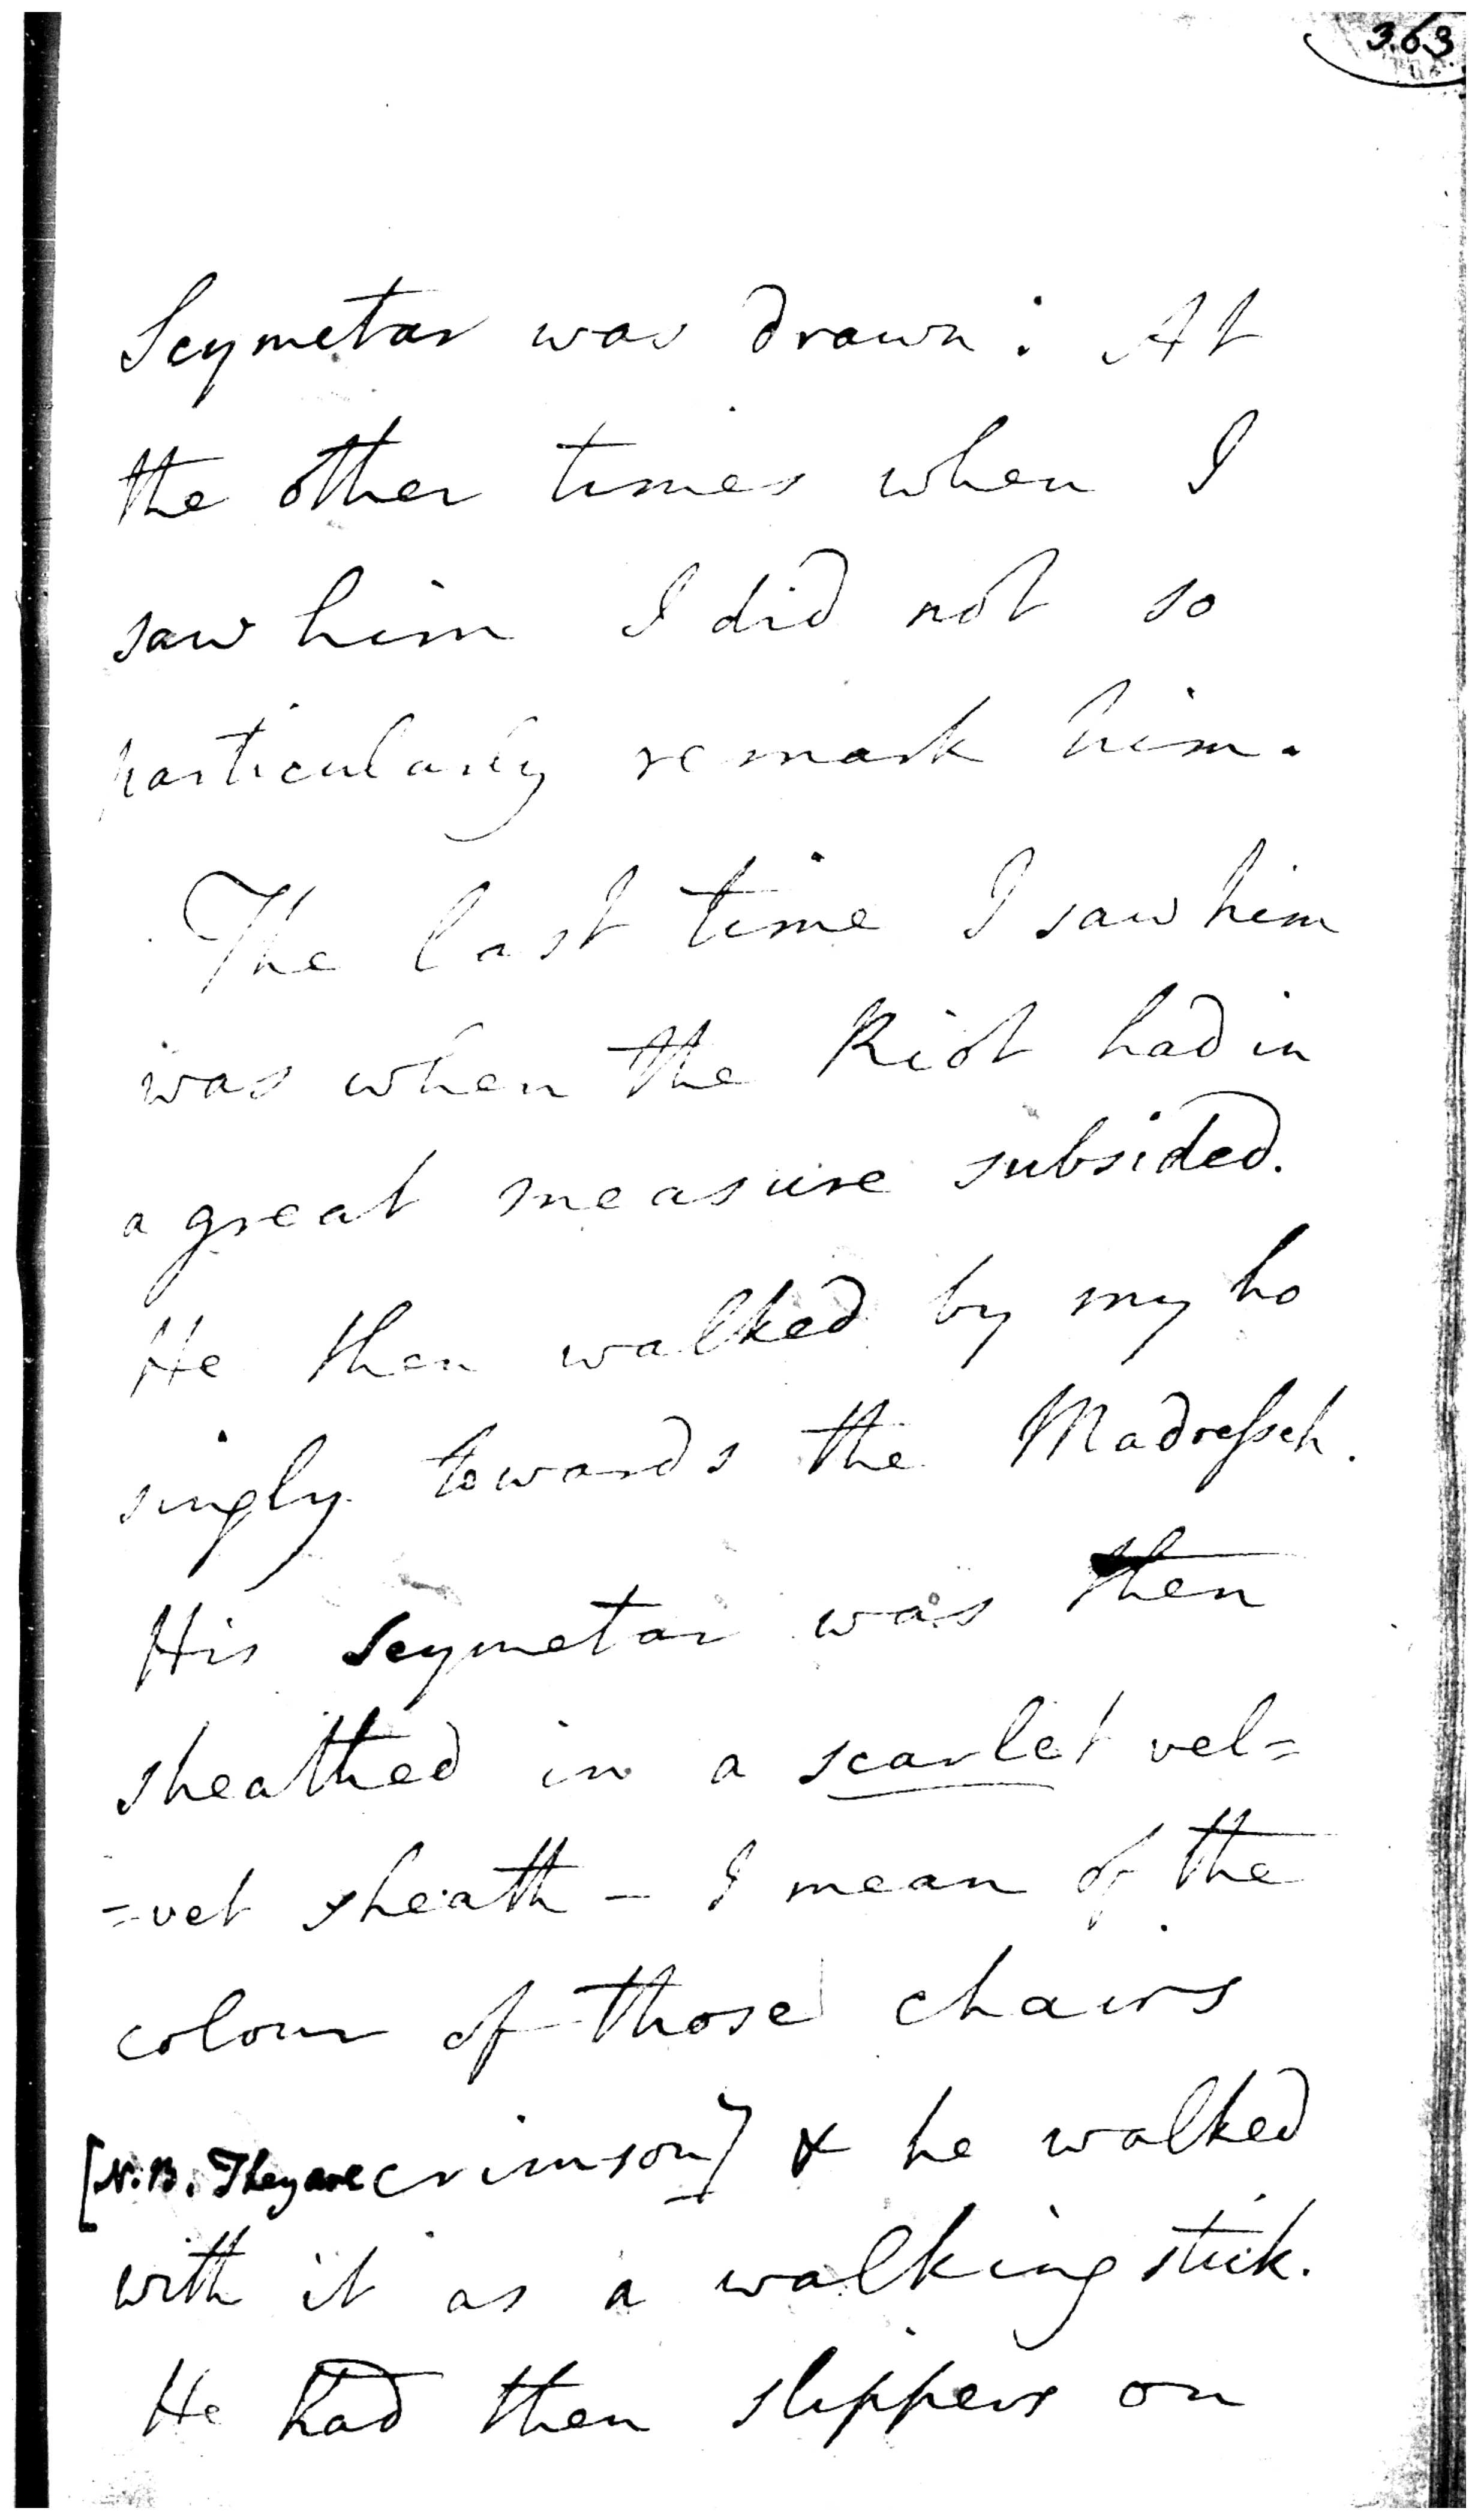 363
Scymetar was drawn: At
the other times when I
saw him I did not so
particularly remark him.
The last time I saw him
was when the Riot had in
a great measure subsided.
He then walked by my ho
singly towards the Madresseh.
His Scymetar was then
sheathed in a scarlet vel=
=vet sheath – I mean of the
colour of those chairs
[N.B. They are crimson] & he walked
with it as a walking stick.
He had then slippers on